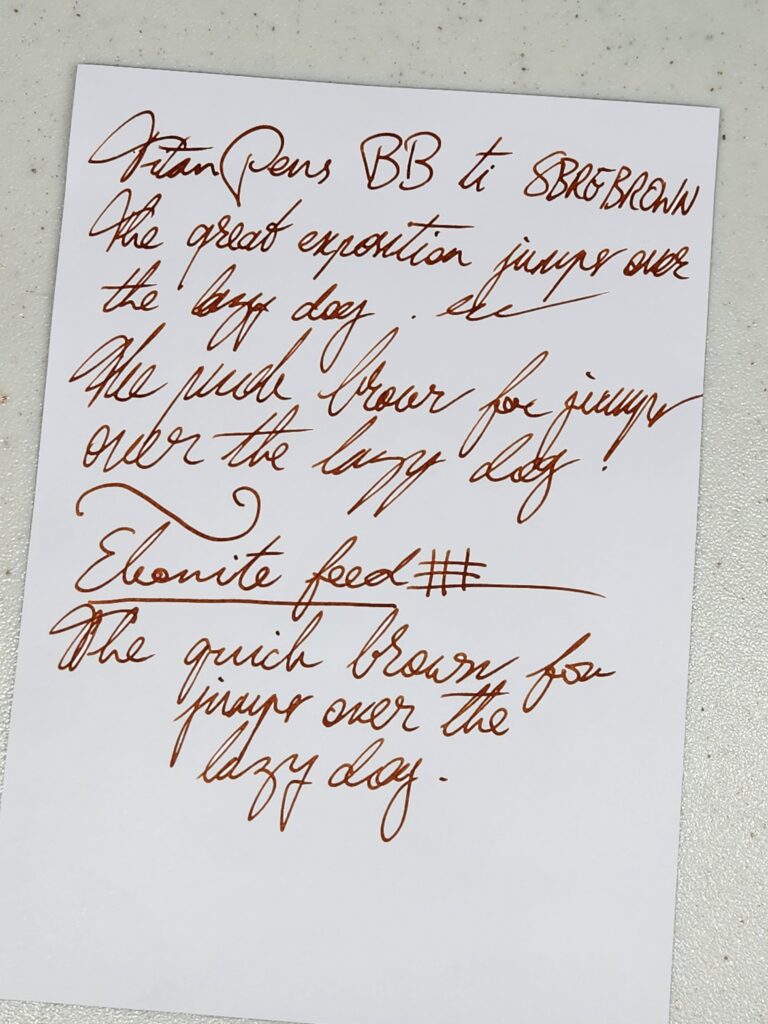 Titan Pens BB ti SBREBROWN
The great exposition jumps over
the lazy dog. etc
The quick brown fox jumps
over the lazy dog.
Ebonite feed
The quick brown fox
jumps over the
lazy dog.